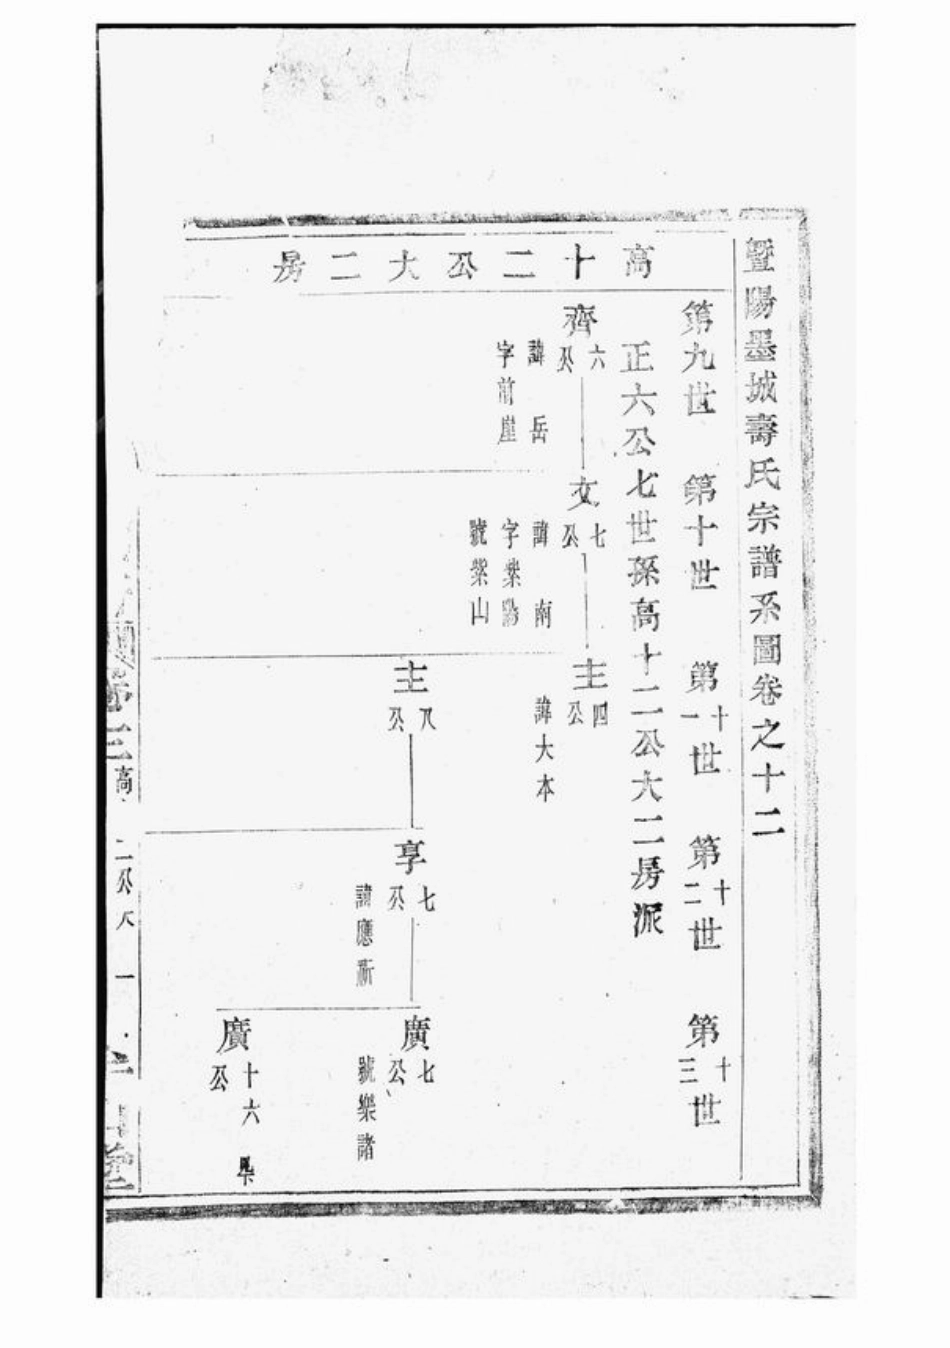 暨陽墨城壽氏宗譜系圖卷之十二
高十二公大二房
第九世
第十世
第十一世
第十二世
第十三世
正六公七世孫高十二公大二房派
齊六公
諱岳
字前崖
文七公
諱南
字紫陽
號紫山
主四公
諱大本
主八公
享七公
諱應斯
廣七公
號樂諸
廣十六公
高
二公大
一